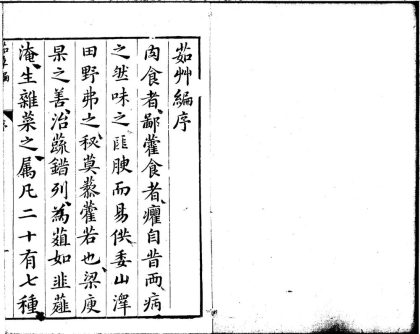 茹艸編序
肉食者鄙藿食者癯自昔兩病
之然味之匪腴而易供委山澤
田野弗之秘莫藜藿若也梁庾
杲之善治蔬錯列為葅如韭薤
淹生雜菜之属凡二十有七種